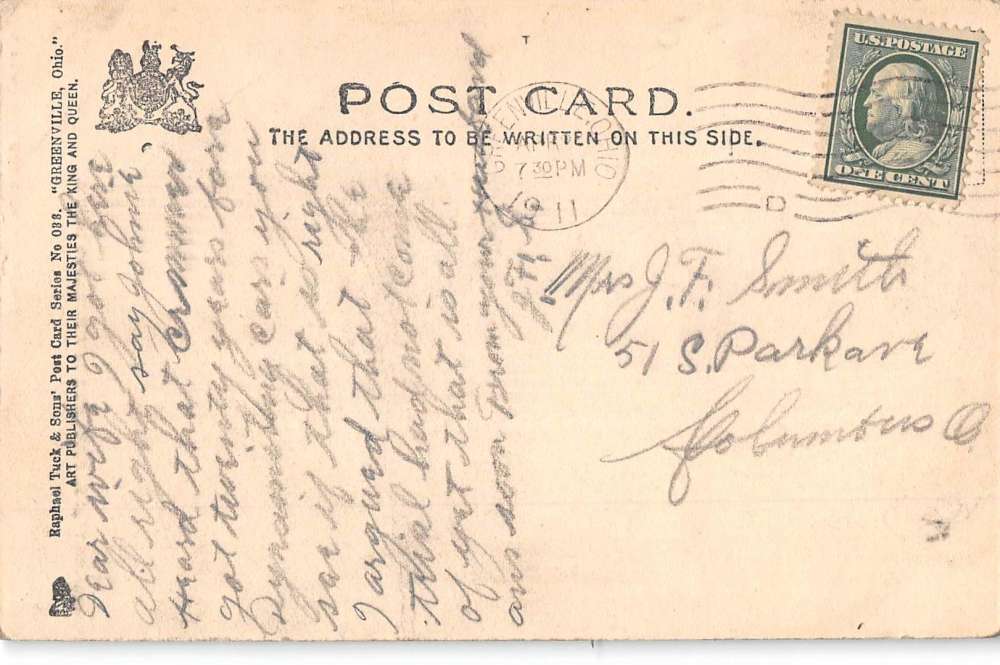 POST CARD.
THE ADDRESS TO BE WRITTEN ON THIS SIDE.
Raphael Tuck & Sons' Post Card Series No 033. "GREENVILLE, Ohio."
ART PUBLISHERS TO THEIR MAJESTIES THE KING AND QUEEN.
U.S. POSTAGE
ONE CENT
GREENVILLE, OHIO
7 30 PM
11
D
T
Dear wife I got here
all right say Johnie
heard that
got twenty years fore
Dynamiting cars you
see if that so right
I argued that the
trial had not come
of yet that is all
ans soon from your
J.F.S.
Mrs J.F. Smith
51 S. Park ave
Columbus O